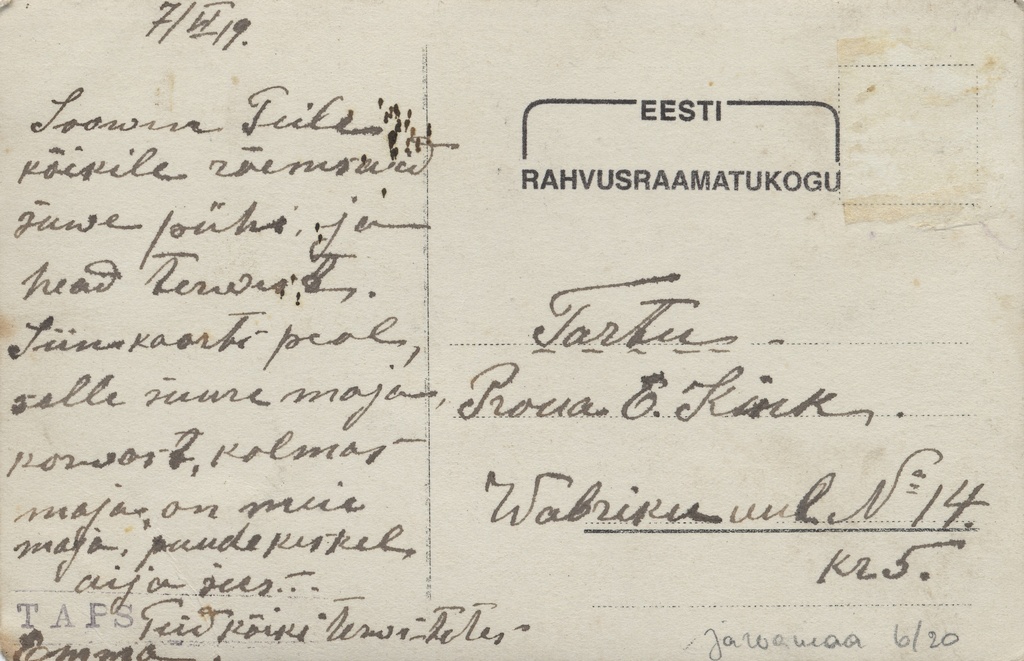 7/VI 19.
Soowin Teile
kõikile rõemsaid
suwe pühi, ja
head terwist.
Siin kaarti peal,
selle suure maja,
korwast, kolmas
maja on meie
maja, puude keskel,
aija sees...
Teid kõiki terwitetes
Emma.
TAPS
EESTI
RAHVUSRAAMATUKOGU
Tartu
Proua E. Kink.
Wabriku uul. No 14.
kr 5.
Järvamaa 6/20